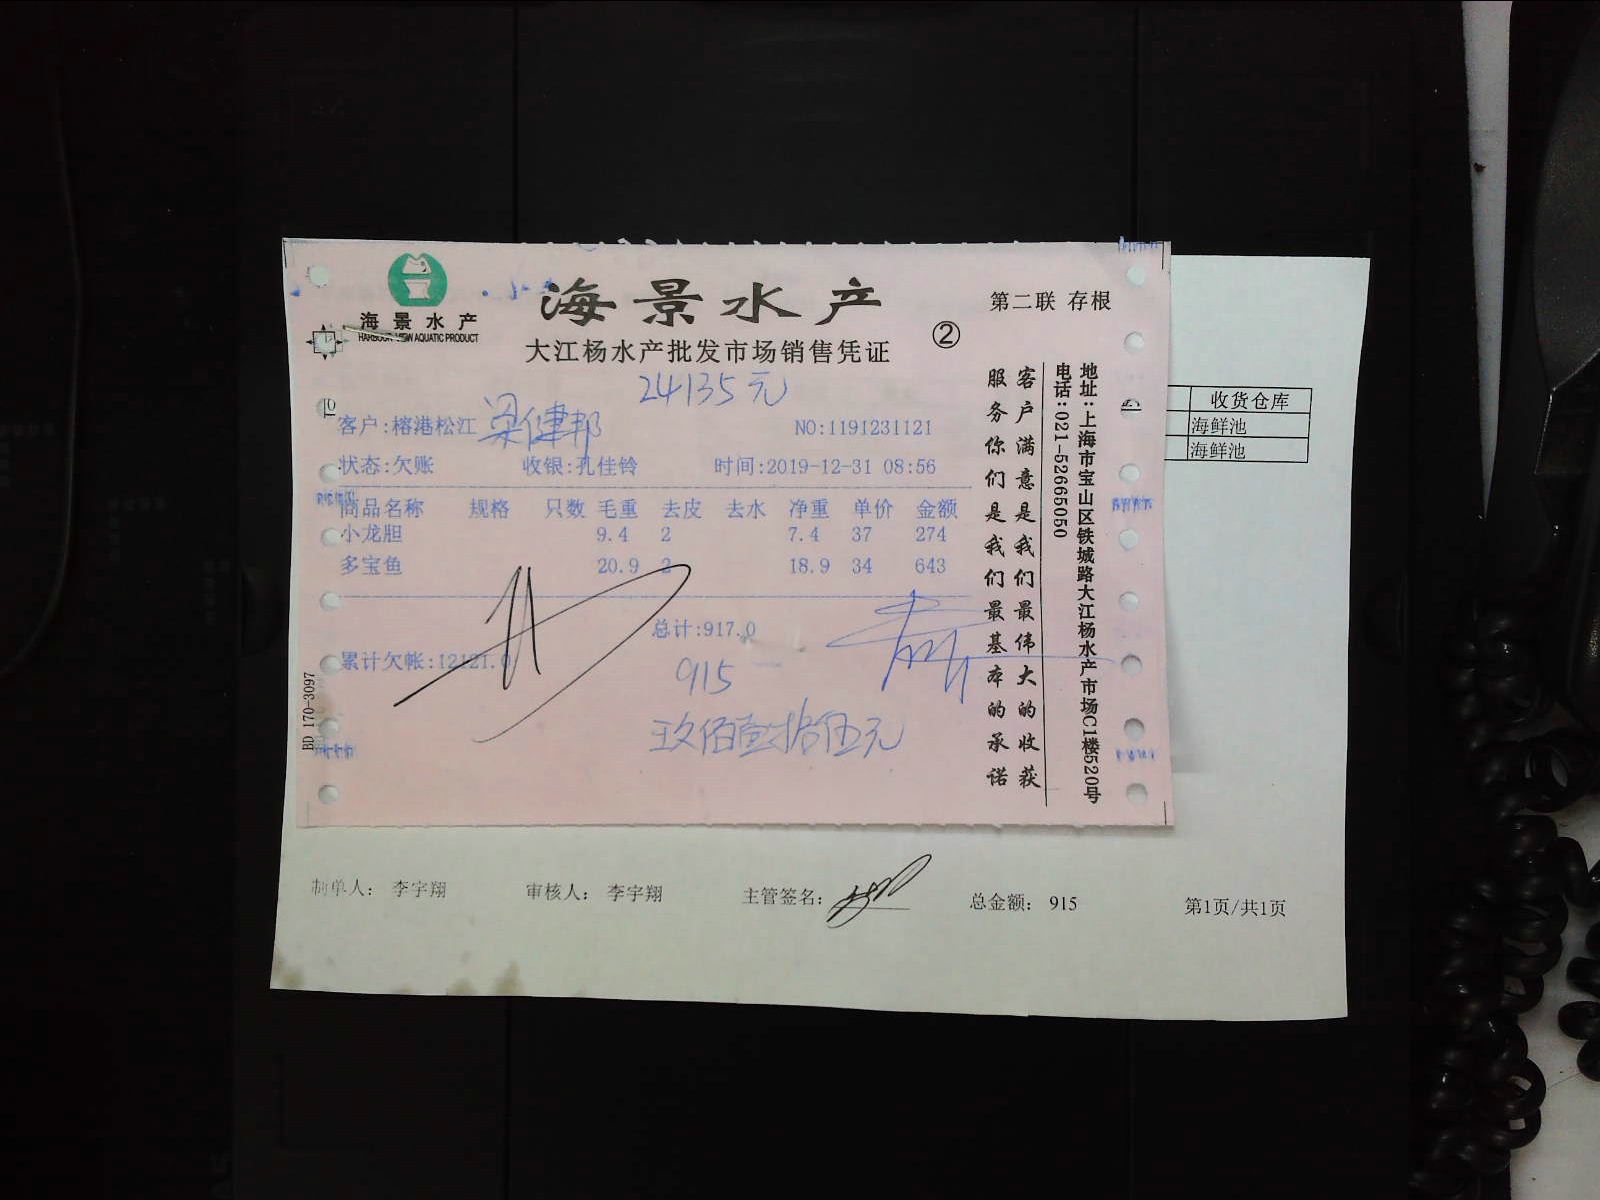 海景水产
HARBOUR VIEW AQUATIC PRODUCT
海景水产
大江杨水产批发市场销售凭证
②
第二联 存根
24135元
客户:榕港松江 梁健邦
NO:1191231121
状态:欠账 收银:孔佳铃 时间:2019-12-31 08:56
商品名称 规格 只数 毛重 去皮 去水 净重 单价 金额
小龙胆 9.4 2 7.4 37 274
多宝鱼 20.9 2 18.9 34 643
总计:917.0
累计欠帐:12121.0
915
玖佰壹拾伍元
客户满意是我们最伟大的收获
服务你们是我们最基本的承诺
地址:上海市宝山区铁城路大江杨水产市场C1楼520号
电话:021-52665050
BD 170-3097
收货仓库
海鲜池
海鲜池
制单人: 李宇翔 审核人: 李宇翔 主管签名: 总金额: 915 第1页/共1页